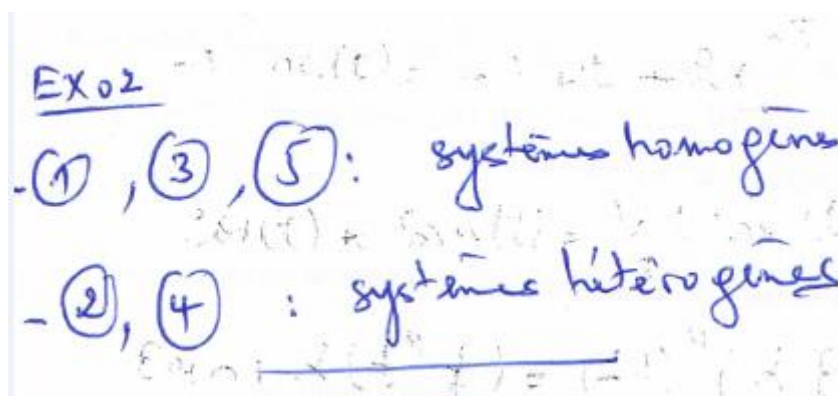 EXO2
- ①, ③, ⑤: systèmes homogènes
- ②, ④ : systèmes hétérogènes